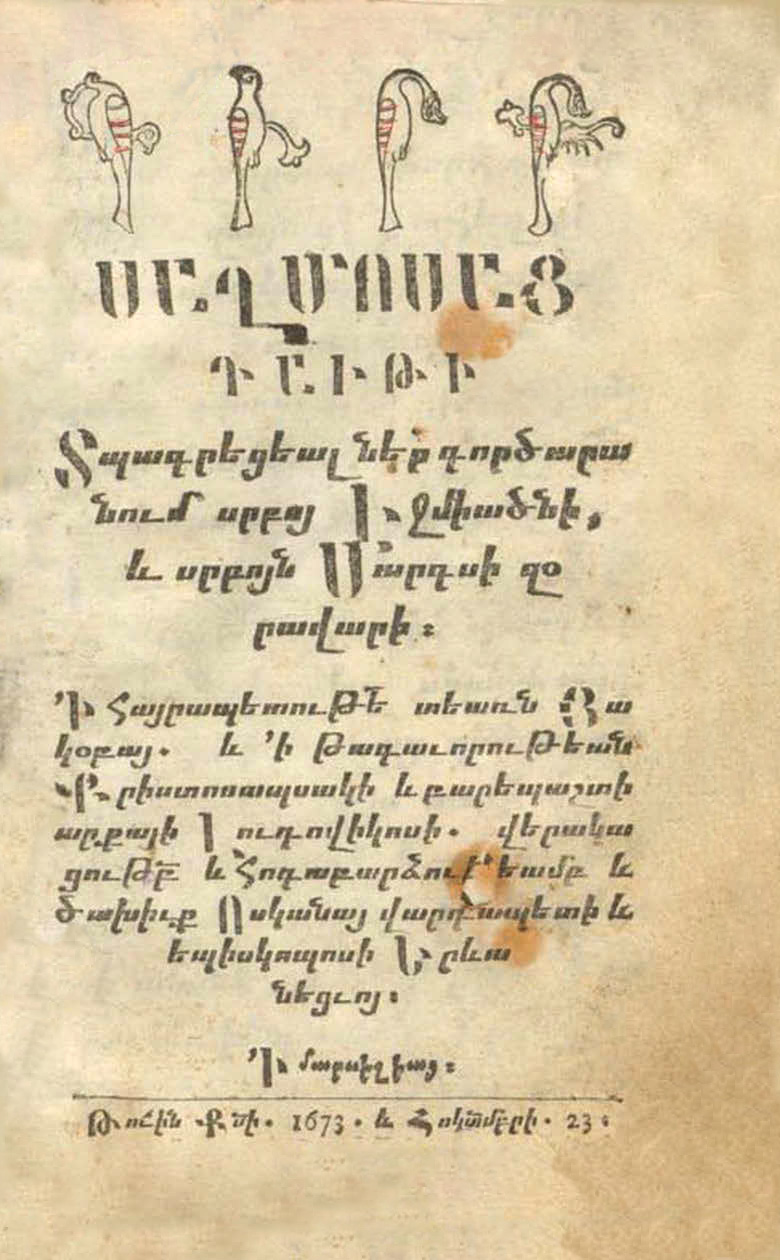 ՍԱՂՄՈՍԱՑ
ԴԱՒԹԻ
Տպագրեցեալ ներգործարա
նում սրբոյ Էջմիածնի,
և սրբոյն Սարգսի զօ
րավարի։
՚Ի Հայրապետութե տեառն Յա
կօբայ. և ՚ի թագաւորութեան
Քրիստոսապսակի և բարեպաշտի
արքայի Լուդովիկոսի. վերակա
ցութբ և հոգաբարձութեամբ և
ծախիւք Ոսկանայ վարդապետի և
եպիսկոպոսի Երևա
նեցւոյ։
՚Ի մարսիլիայ։
Թուին Քրսի. 1673. և Հոկտմբրի. 23։